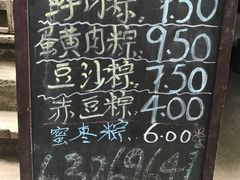 鲜肉粽 7.50
蛋黄肉粽 9.50
豆沙粽 7.50
赤豆粽 4.00
蜜枣粽 6.00